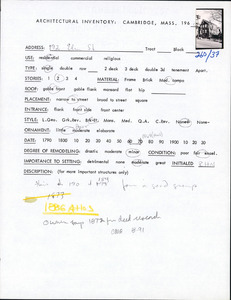 ARCHITECTURAL INVENTORY: CAMBRIDGE, MASS, 196
ADDRESS: St Tract Block
260/37
USE: residential commercial religious
TYPE: single double row 2 deck 3 deck double 3d tenement Apart.
STORIES: 1 2 3 4 MATERIAL: Frame Brick Mas. Comps
ROOF: gable front gable flank mansard flat hip
PLACEMENT: narrow to street broad to street square
ENTRANCE: flank front side front center
STYLE: L.Geo. Gk.Rev. Brkt. Mans. Med. Q.A. C.Rev. None
ORNAMENT: little moderate elaborate
DATE: 1790 1810 30 40 50 60 70 80 90 1900 10 20 30 40 50 60 70
DEGREE OF REMODELING: drastic moderate minor CONDITION: poor fair excel.
IMPORTANCE TO SETTING: detrimental none moderate great INITIALED
DESCRIPTION: (for more important structures only)
form a good group
1877
Owner says 1872 per deed research